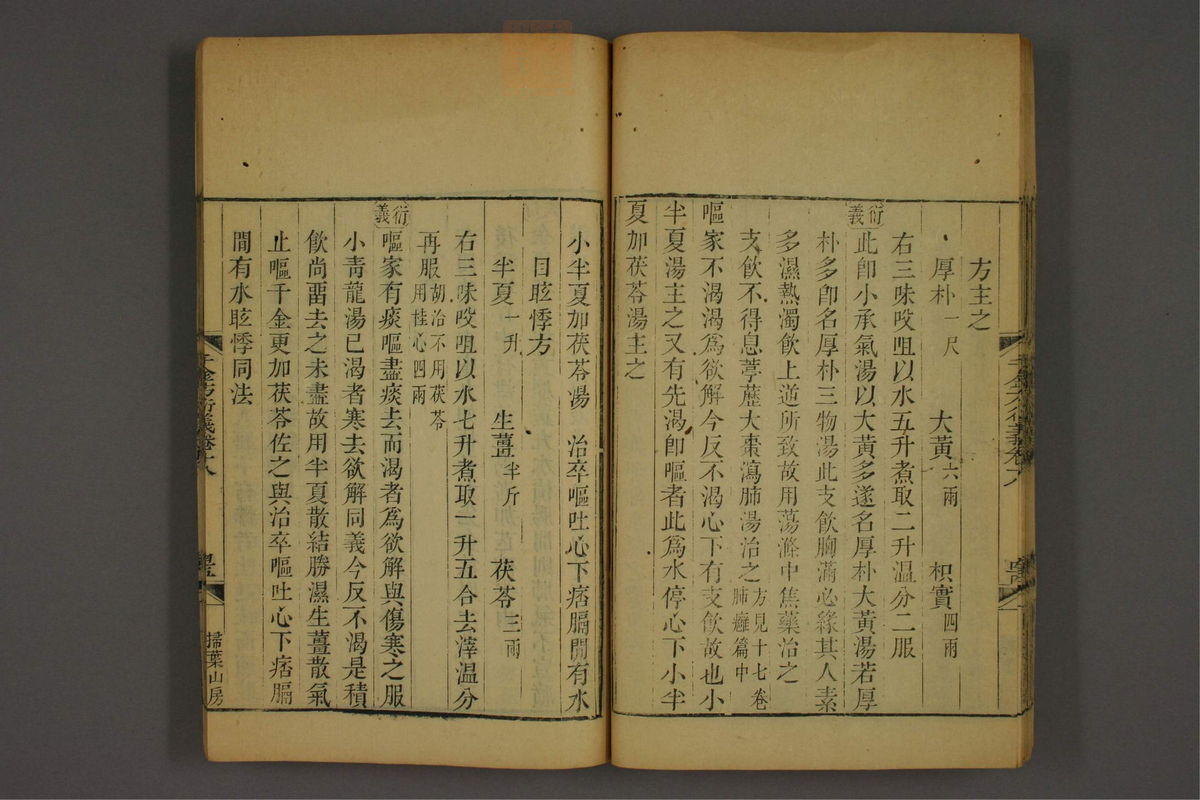 方主之
厚朴一尺 大黃六兩 枳實四兩
右三味㕮咀以水五升煮取二升温分二服
衍義
此卽小承氣湯以大黃多遂名厚朴大黃湯若厚
朴多卽名厚朴三物湯此支飲胸滿必緣其人素
多濕熱濁飲上逆所致故用蕩滌中焦藥治之
支飲不得息葶藶大棗瀉肺湯治之方見十七卷
肺癰篇中
嘔家不渴渴爲欲解今反不渴心下有支飲故也小
半夏湯主之又有先渴卽嘔者此爲水停心下小半
夏加茯苓湯主之
小半夏加茯苓湯 治卒嘔吐心下痞膈間有水
目眩悸方
半夏一升 生薑半斤 茯苓三兩
右三味㕮咀以水七升煮取一升五合去滓温分
再服胡洽不用茯苓
用桂心四兩
衍義
嘔家有痰嘔盡痰去而渴者爲欲解與傷寒之服
小靑龍湯已渴者寒去欲解同義今反不渴是積
飲尚畱去之未盡故用半夏散結勝濕生薑散氣
止嘔千金更加茯苓佐之與治卒嘔吐心下痞膈
間有水眩悸同法
千金方衍義卷十八
掃葉山房